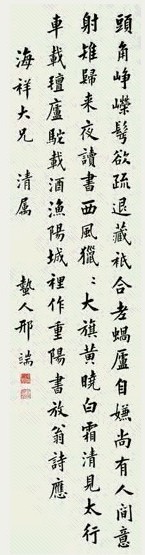 頭角崢嶸髩欲疏退藏祇合老蝸廬自嫌尚有人間意
射雉歸来夜讀書西風獵〻大旗黄曉白霜清見太行
車載氊廬駝載酒漁陽城裡作重陽書放翁詩應
海祥大兄 清属 蟄人邢端